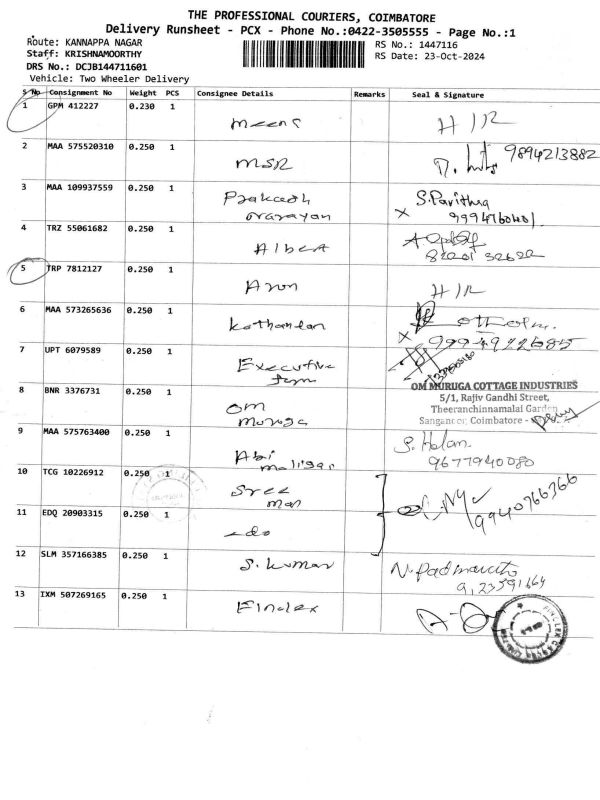 THE PROFESSIONAL COURIERS, COIMBATORE
Delivery Runsheet - PCX - Phone No.:0422-3505555 - Page No.:1
Route: KANNAPPA NAGAR
RS No.: 1447116
Staff: KRISHNAMOORTHY
RS Date: 23-Oct-2024
DRS No.: DCJB144711601
Vehicle: Two Wheeler Delivery
S No Consignment No Weight PCS Consignee Details Remarks Seal & Signature
1 GPM 412227 0.230 1 Meena H I R
2 MAA 575520310 0.250 1 MSR 9894213882
3 MAA 109937559 0.250 1 Prakash
Narayan
S.Pavithra
4 TRZ 55061682 0.250 1 Albert
5 TRP 7812127 0.250 1 Arun H I R
6 MAA 573265636 0.250 1
7 UPT 6079589 0.250 1 Executive
8 BNR 3376731 0.250 1 Om
Muruga
OM MURUGA COTTAGE INDUSTRIES
5/1, Rajiv Gandhi Street,
Theeranchinnamalai Garden
Sanganoor, Coimbatore -
9 MAA 575763400 0.250 1 Abi
9677940080
10 TCG 10226912 0.250 1 Sree
9940766366
11 EDQ 20903315 0.250 1
12 SLM 357166385 0.250 1 S. Kumar
13 IXM 507269165 0.250 1 Finclex